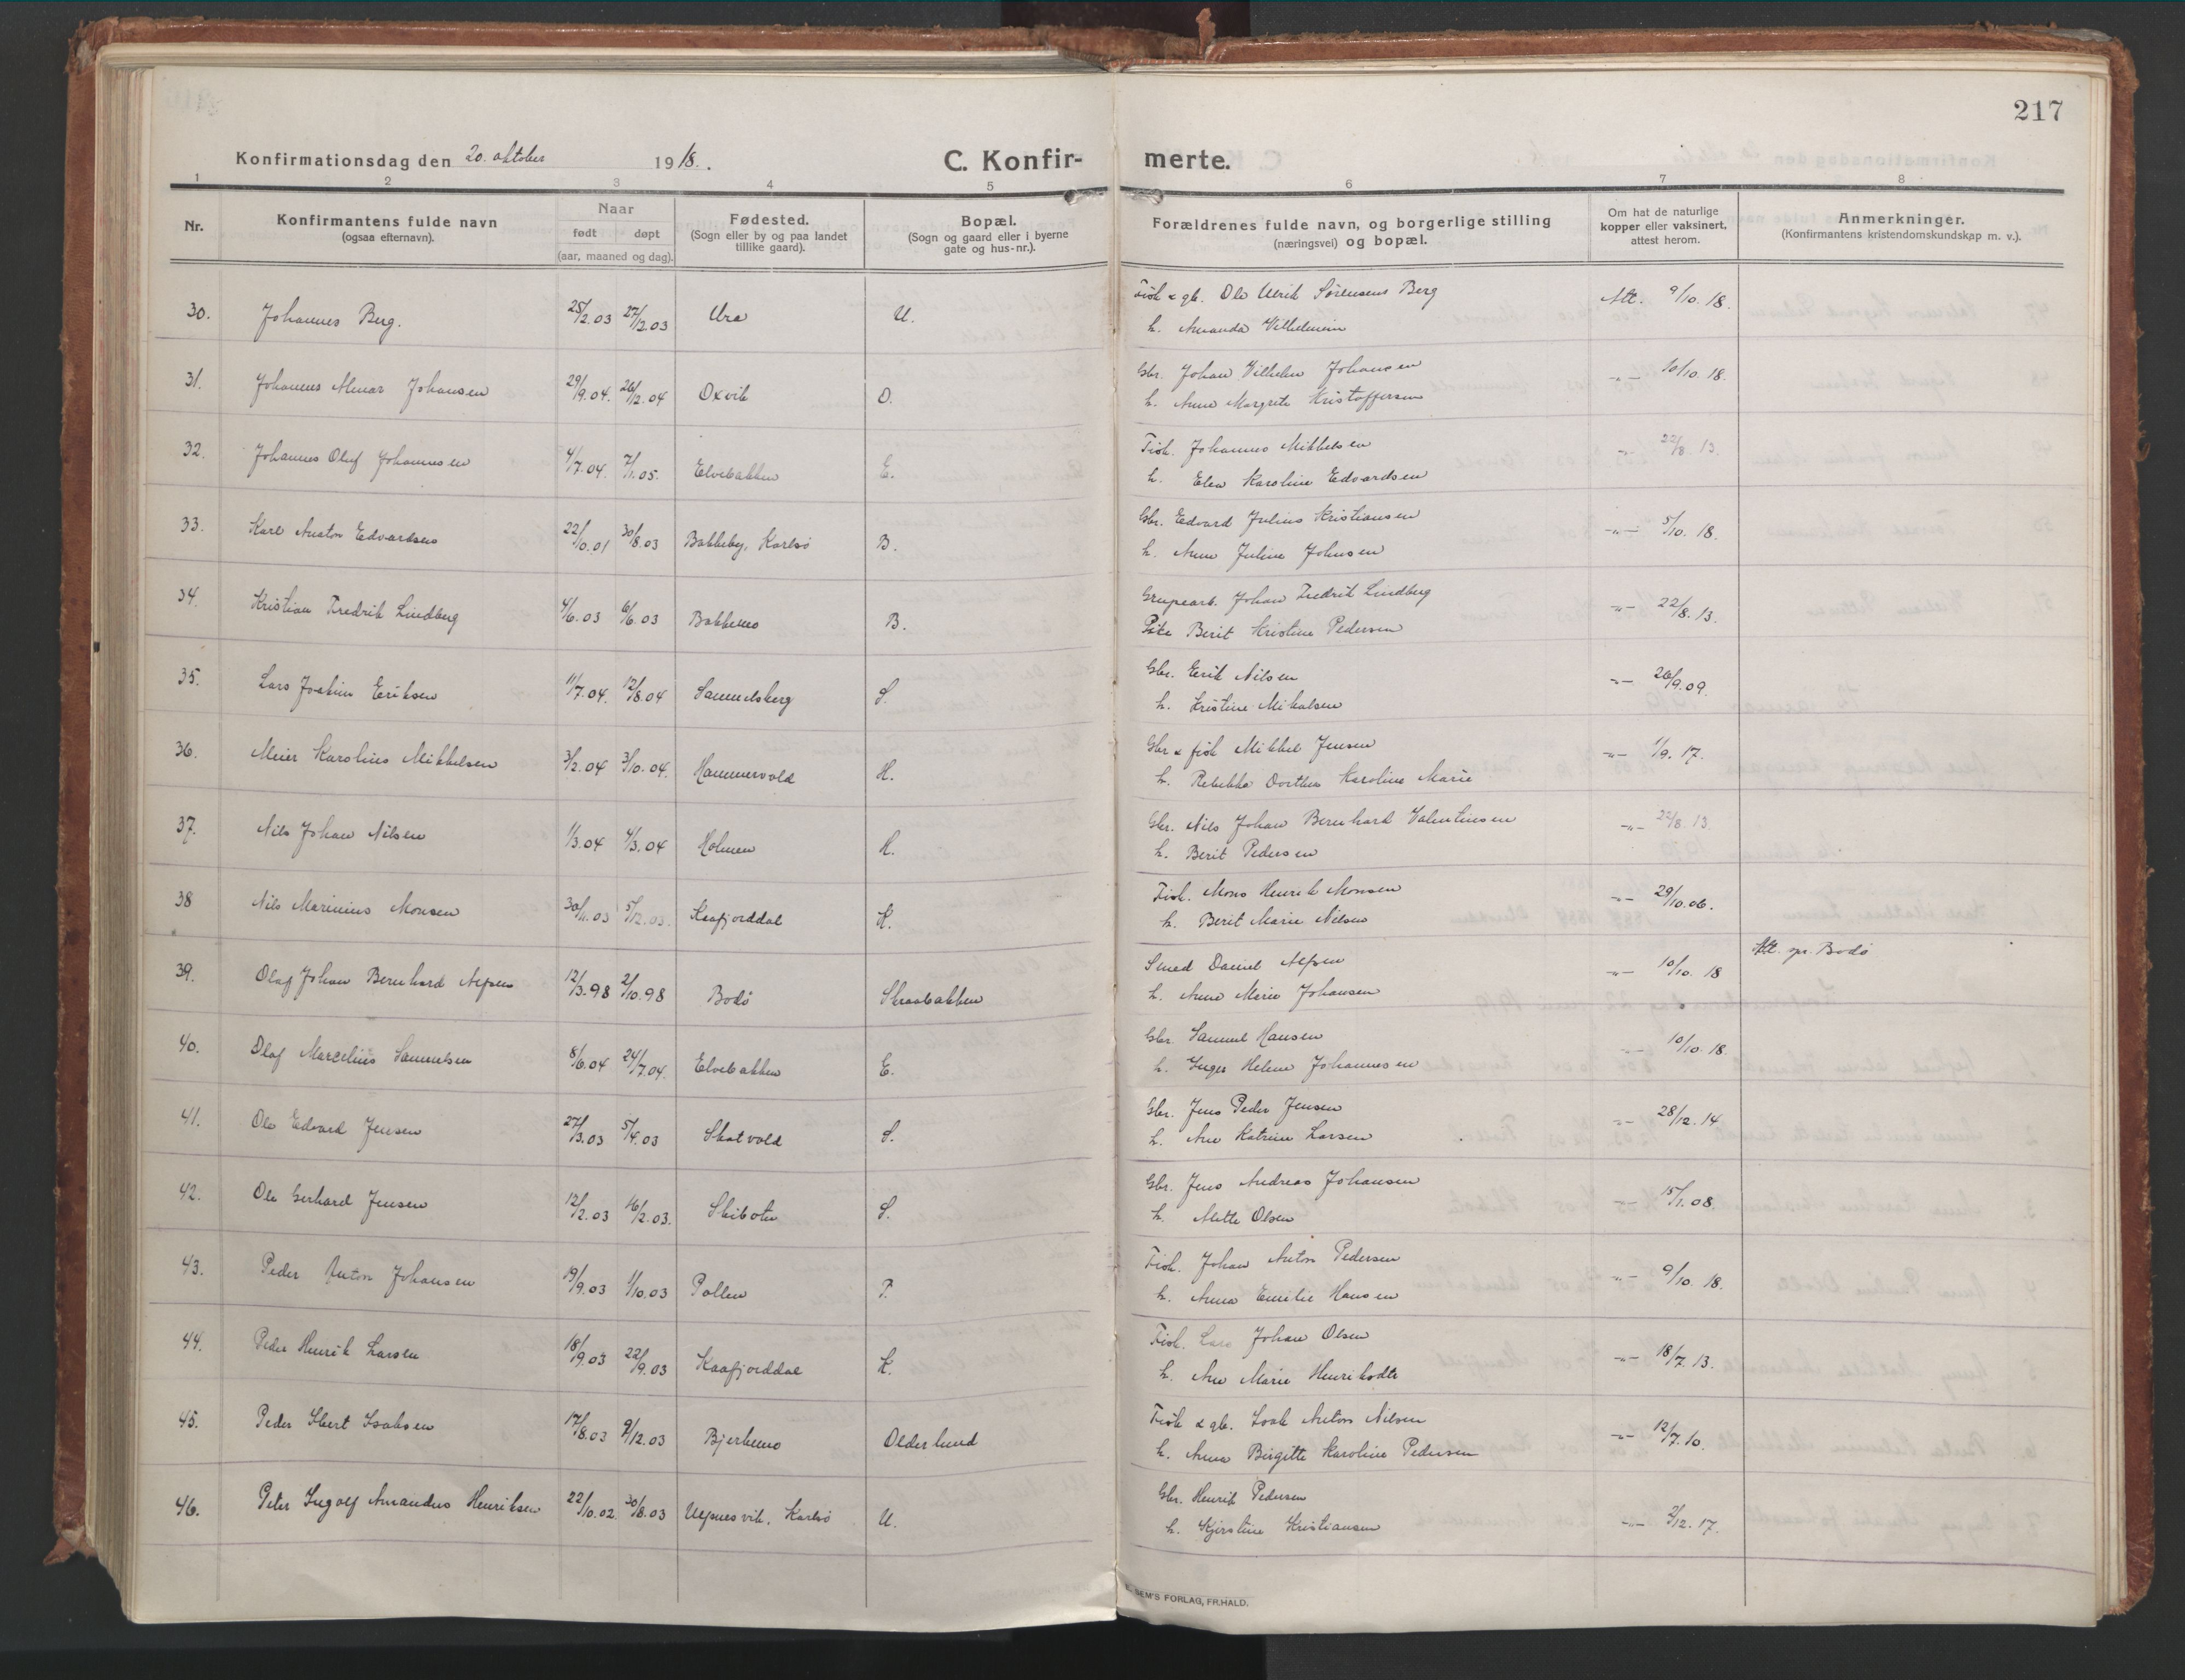 217
Konfirmationsdag den 20. oktober 1918. C. Konfir- merte.
1 2 3 4 5 6 7 8
Nr. Konfirmantens fulde navn (ogsaa efternavn). Naar født døpt (aar, maaned og dag). Fødested. (Sogn eller by og paa landet tillike gaard). Bopæl. (Sogn og gaard eller i byerne gate og hus-nr.). Forældrenes fulde navn, og borgerlige stilling (næringsvei) og bopæl. Om hat de naturlige kopper eller vaksinert, attest herom. Anmerkninger. (Konfirmantens kristendomskundskap m. v.).
30. Johannes Berg. 25/2.03 27/2.03 Ura U. Fisk & gb. Ole Ulrik Sørensens Berg Att. 9/10.18.
h. Amanda Vilhelmin
31. Johannes Almar Johansen 29/9.04. 26/12.04 Oxvik O. Gbr. Johan Vilhelm Johansen -"- 10/10.18.
h. Anne Margrete Kristoffersen
32. Johannes Oluf Johannesen 4/7.04. 7/1.05. Elvebakken E. Fisk. Johannes Mikkelsen -"- 22/8.13.
h. Elea Karoline Edvardsen
33. Karl Anton Edvardsen 22/10.01 30/8.03 Bakkeby, Karlsø B. Gbr. Edvard Julius Kristiansen -"- 5/10.18.
h. Anne Juline Johnsen
34. Kristian Fredrik Lindberg 4/6.03 6/6.03 Bakkemo B. Grupearb. Johan Fredrik Lindberg -"- 22/8.13.
Pike Berit Kristine Pedersen
35. Lars Joakim Eriksen 11/7.04. 12/8.04 Samuelsberg S. Gbr. Erik Nilsen -"- 26/9.09.
h. Kristine Mikalsen
36. Meier Karolius Mikkelsen 3/2.04 3/10.04. Hammervold H. Gbr & fisk Mikkel Jensen -"- 1/9.17.
h. Rebekka Dorthea Karoline Marie
37. Nils Johan Nilsen 1/3.04 4/3.04 Holmen H. Gbr. Nils Johan Bernhard Valentinsen -"- 22/8.13.
h. Berit Pedersen
38 Nils Marinius Monsen 30/11.03 5/12.03. Kaafjorddal K. Fisk. Mons Henrik Monsen -"- 29/10.06.
h. Berit Marie Nilsen
39. Olaf Johan Bernhard Alfsen 12/3.98 2/10.98 Bodø Skraabakken Smed Daniel Alfsen -"- 10/10.18 Att. spr. Bodø
h. Anne Marie Johansen
40. Olaf Marcelius Samuelsen 8/6.04 24/7.04. Elvebakken E. Gbr. Samuel Hansen -"- 10/10.18.
h. Inger Helene Johannesen
41. Ole Edvard Jensen 27/3.03 5/4.03 Skatvold S. Gbr. Jens Peder Jensen -"- 28/12.14
h. Ane Katrine Larsen
42. Ole Gerhard Jensen 12/2.03 16/2.03. Skibotn S. Gbr. Jens Andreas Johansen -"- 15/1.08.
h. Mette Olsen
43. Peder Anton Johansen 19/9.03 1/10.03 Pollen P. Fisk. Johan Anton Pedersen -"- 9/10.18.
h. Anna Emilie Hansen
44. Peder Henrik Larsen 18/9.03 22/9.03 Kaafjorddal K. Fisk. Lars Johan Olsen -"- 18/7.13.
h. Ane Marie Henriksdtr
45. Peder Ebert Isaksen 17/8.03 9/12.03 Bjerkemo Olderlund Fisk & gb. Isak Anton Nilsen -"- 12/7.10.
h. Anna Birgitte Karoline Pedersen
46. Peter Ingolf Amandus Henriksen 22/10.02. 30/8.03 Ulfsnesvik, Karlsø U. Gbr. Henrik Pedersen -"- 2/12.17.
h. Kjerstine Kristiansen
SEM'S FORLAG, FR.HALD.